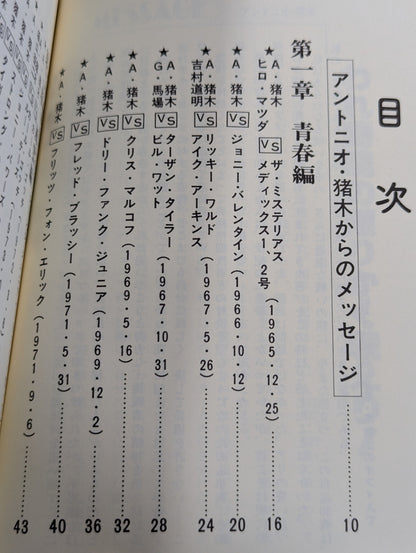 目次
アントニオ・猪木からのメッセージ……10
第一章 青春編
★A・猪木
ヒロ・マツダ VS ザ・ミステリアス
メディックス1、2号(1965・12・25)……16
★A・猪木 VS ジョニー・バレンタイン(1966・10・12)……20
★A・猪木
吉村道明 VS リッキー・ワルド
アイク・アーキンス(1967・5・26)……24
★A・猪木
G・馬場 VS ターザン・タイラー
ビル・ワット(1967・10・31)……28
★A・猪木 VS クリス・マルコフ(1969・5・16)……32
★A・猪木 VS ドリー・ファンク・ジュニア(1969・12・2)……36
★A・猪木 VS フレッド・ブラッシー(1971・5・31)……40
★A・猪木 VS フリッツ・フォン・エリック(1971・9・6)……43